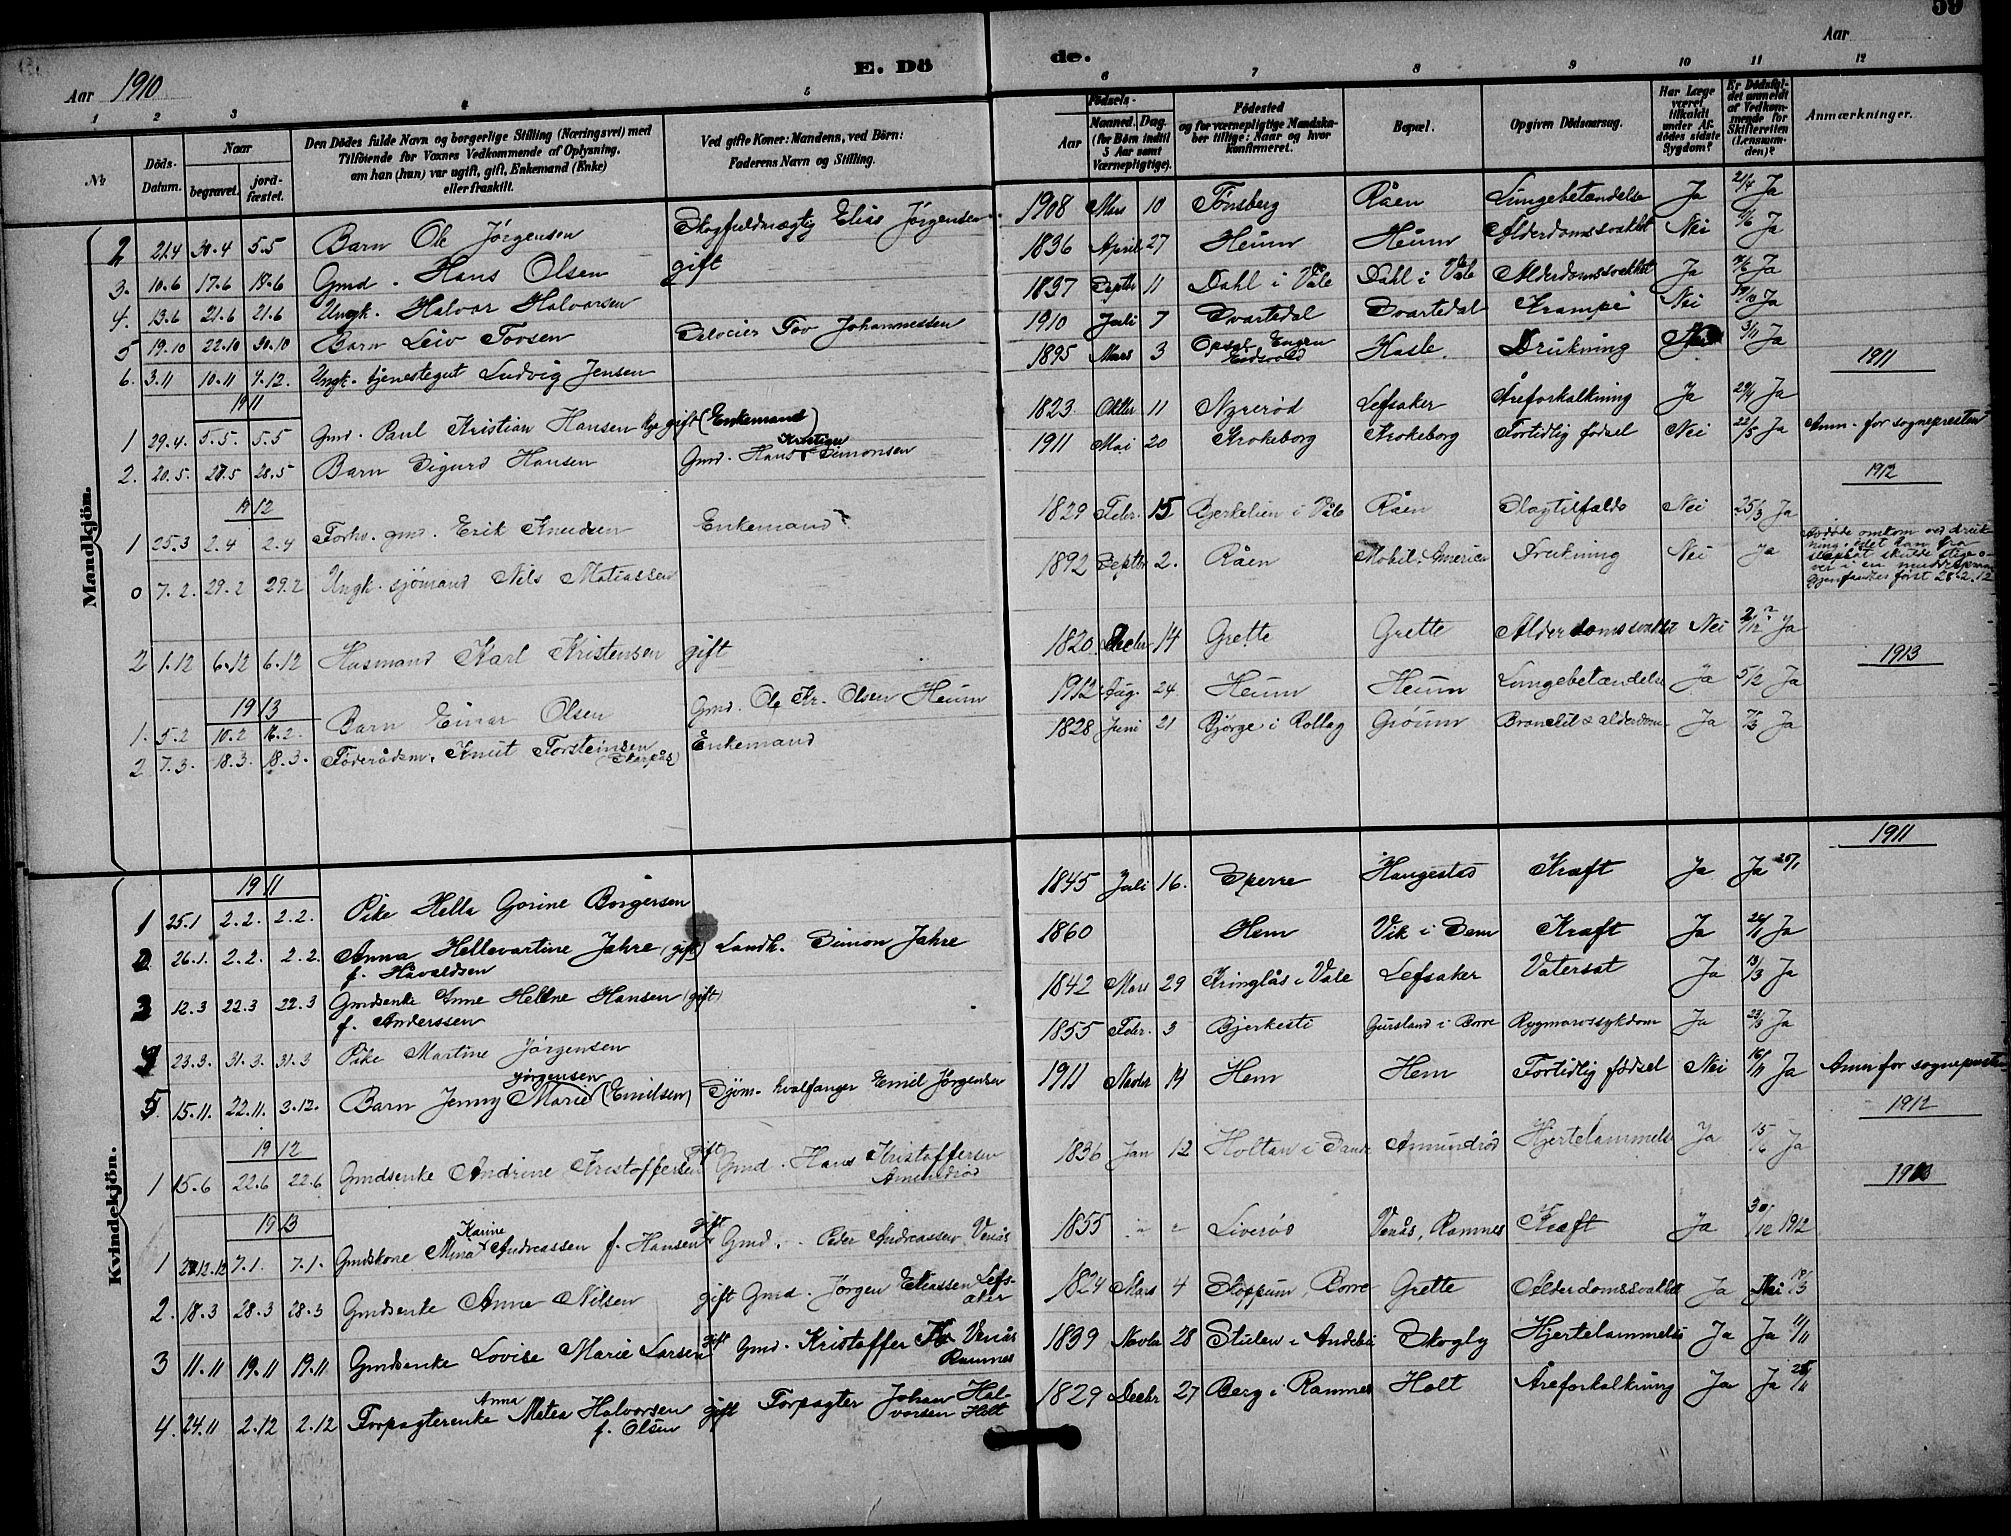 59
E. Dö
de.
Aar 1910
Aar
1 2 3 4 5 6 7 8 9 10 11 12
№
Döds-Datum.
Naar
begravet.
jord-fæstet.
Den Dödes fulde Navn og borgerlige Stilling (Næringsvei) med
Tilföiende for Voxnes Vedkommende af Oplysning,
om han (hun) var ugift, gift, Enkemand (Enke)
eller fraskilt.
Ved gifte Koner: Mandens, ved Börn:
Faderens Navn og Stilling.
Födsels-
Aar
Maaned. Dag.
(for Börn indtil
5 Aar samt
Værnepligtige).
Födested
og for værnepligtige Mandska-
ber tillige: Naar og hvor
konfirmeret.
Bopæl.
Opgiven Dödsaarsag.
Har Læge
været
tilkaldt
under Af-
dödes sidste
Sygdom?
Er Dödsfal-
det anmeldt
af Vedkom-
mende for
Skifteretten
(Lensman-
den)?
Anmærkninger.
Mandkjön.
2 21.4 30.4 5.5 Barn Ole Jörgensen Skogfuldmægtig Elias Jörgensen 1908 Mars 10 Tönsberg Råen Lungebetændelse Ja 21/4 Ja
3. 10.6 17.6 19.6 Gmd. Hans Olsen gift 1836 April 27 Heum Heum Alderdomssvakhet Nei Ja
4. 13.6 21.6 21.6 Ungk. Halvor Halvorsen 1837 Septbr 11 Dahl i Våle Dahl i Våle Alderdomssvakhet Ja Ja
5 19.10 22.10 30.10 Barn Leiv Tovsen Tov Johannessen 1910 Juli 7 Svartedal Svartedal Krampe Nei 19/10 Ja
6. 3.11 10.11 7.12. Ungk. tjenestegut Ludvig Jensen 1895 Mars 3 Opsal Engen Eidsvold Hasle Drukning 3/11 Ja
1911
1911
1 29.4. 5.5. 5.5 Gmd. Paul Kristian Hansen gift (Enkemand) 1823 Oktbr 11 Nyrerød Lefsaker Åreforkalkning Ja 29/4 Ja
2. 20.5. 27.5 28.5 Barn Sigurd Hansen Gmd. Hans Kristian Simonsen 1911 Mai 20 Krokeborg Krokeborg Fortidlig födsel Nei 22/5 Ja Anm. for sognepresten
1912
1912
1 25.3 2.4 2.4 Forhv. gmd. Erik Knudsen Enkemand 1829 Febr. 15 Bjerkelien i Våle Råen Slagtilfælde Nei 25/3 Ja
0 7.2. 29.2 29.2 Ungk. sjömand Nils Matiassen 1892 Septbr 2. Råen Mobil, America Drukning Nei Ja
Afdøde omkom ved druk-
ning idet han fra
slepbåt skulde stige o-
ver i en mudderpram
Gjenfandtes först 28.2.12
2 1.12 6.12 6.12 Husmand Karl Kristensen gift 1820 Decbr 14 Grette Grette Alderdomssvakhet Nei 2/12 Ja
1913
1913
1. 5.2 10.2 16.2. Barn Einar Olsen Gmd. Ole Kr. Olsen Heum 1912 Aug. 24 Heum Heum Lungebetændelse Ja 5/2 Ja
2 7.3. 18.3. 18.3. Föderådsm. Knut Torsteinsen Enkemand 1828 Juni 21 Bjørge i Rollag Gröum Bronchit & alderdom Ja 7/3 Ja
Kvindekjön.
1911
1911
1 25.1 2.2. 2.2. Pike Hella Gorine Borgersen 1845 Juli 16. Sperre Haugestad Kræft Ja Ja 25/1
2 26.1. 2.2. 2.2. Anna Hellevartine Jahre (gift) Landh. Simon Jahre 1860 Hem Vik i Sem Kræft Ja 26/1 Ja
f. Håvaldsen
3 12.3 22.3 22.3 Gmdsenke Anne Helene Hansen (gift) 1842 Mars 29 Kringlås i Våle Lefsaker Vatersot Ja 13/3 Ja
f. Anderssen
4 23.3. 31.3. 31.3 Pike Martine Jörgensen 1855 Febr. 3 Bjerkesti Gursland i Borre Rygmarvssykdom Ja 23/3 Ja
5 15.11. 22.11. 3.12. Barn Jenny Marie Jörgensen (Emilsen) Sjöm. hvalfanger Emil Jörgensen 1911 Novbr 14 Hem Hem Fortidlig födsel Nei 16/11 Ja Anm for sognepresten
1912
1912
1 15.6 22.6 22.6 Gmdsenke Andrine Kristoffersen gift Gmd. Hans Kristoffersen Amundröd 1836 Jan 12 Holtan i Sande Amundröd Hjertelammelse Ja 15/6 Ja
1913
1913
1 7.1. 7.1. Gmdskone Mina Karine Andreassen f. Hansen gift Gmd. Peder Andreassen Venås 1855 Liveröd Venås, Ramnes Kræft Ja 30/12 1912
2. 18.3 28.3 28.3 Gmdsenke Anne Nilsen gift Gmd. Jörgen Eliassen Lefs-
aker 1824 Mars 4 Stoppum, Borre Grette Alderdomssvakhet Ja Nei 19/3
3 11.11 19.11 19.11 Gmdsenke Lovise Marie Larsen gift Gmd. Kristoffer Venås
Ramnes 1839 Novbr 28 Stulen i Andebu Skogly Hjertelammelse Ja Ja 11/11
4. 24.11 2.12 2.12 Forpagterenke Anna Metea Halvorsen gift Forpagter Johan Hal-
f. Olsen vorsen Holt 1829 Decbr 27 Berg i Ramnes Holt Åreforkalkning Ja Ja 25/11